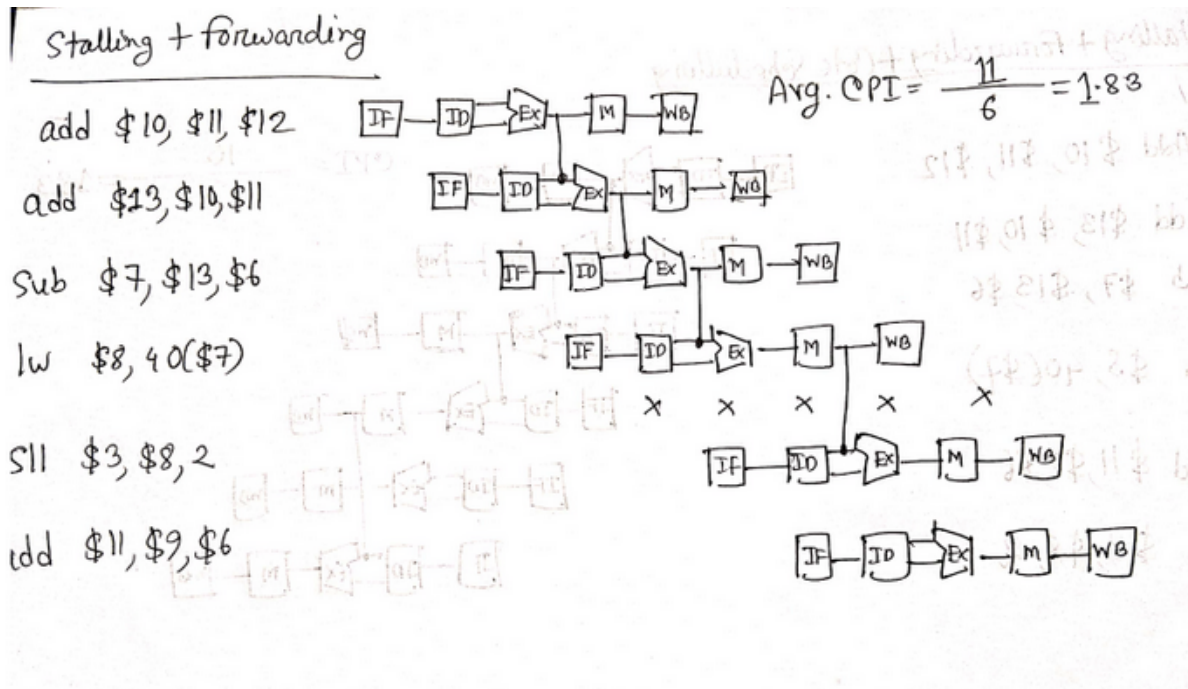 Stalling + forwarding
Avg. CPI = 11/6 = 1.83
add $10, $11, $12 IF ID EX M WB
add $13, $10, $11 IF ID EX M WB
sub $7, $13, $6 IF ID EX M WB
lw $8, 40($7) IF ID EX M WB
x x x x x
sll $3, $8, 2 IF ID EX M WB
add $11, $9, $6 IF ID EX M WB